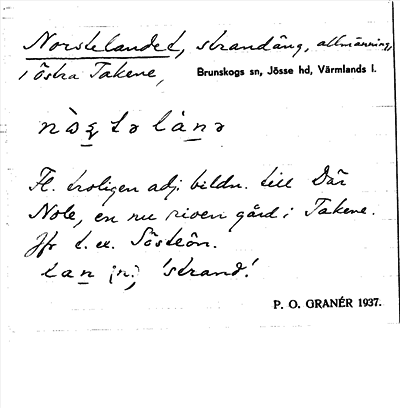 Norstelandet, strandäng, allmänning,
i östra Takene, Brunskogs sn, Jösse hd, Värmlands l.
Fl. troligen adj. bildn. till Där
Nole, en nu riven gård i Takene.
Jfr t. ex. Sösteön.
lan n; 'strand'.
P. O. GRANÉR 1937.